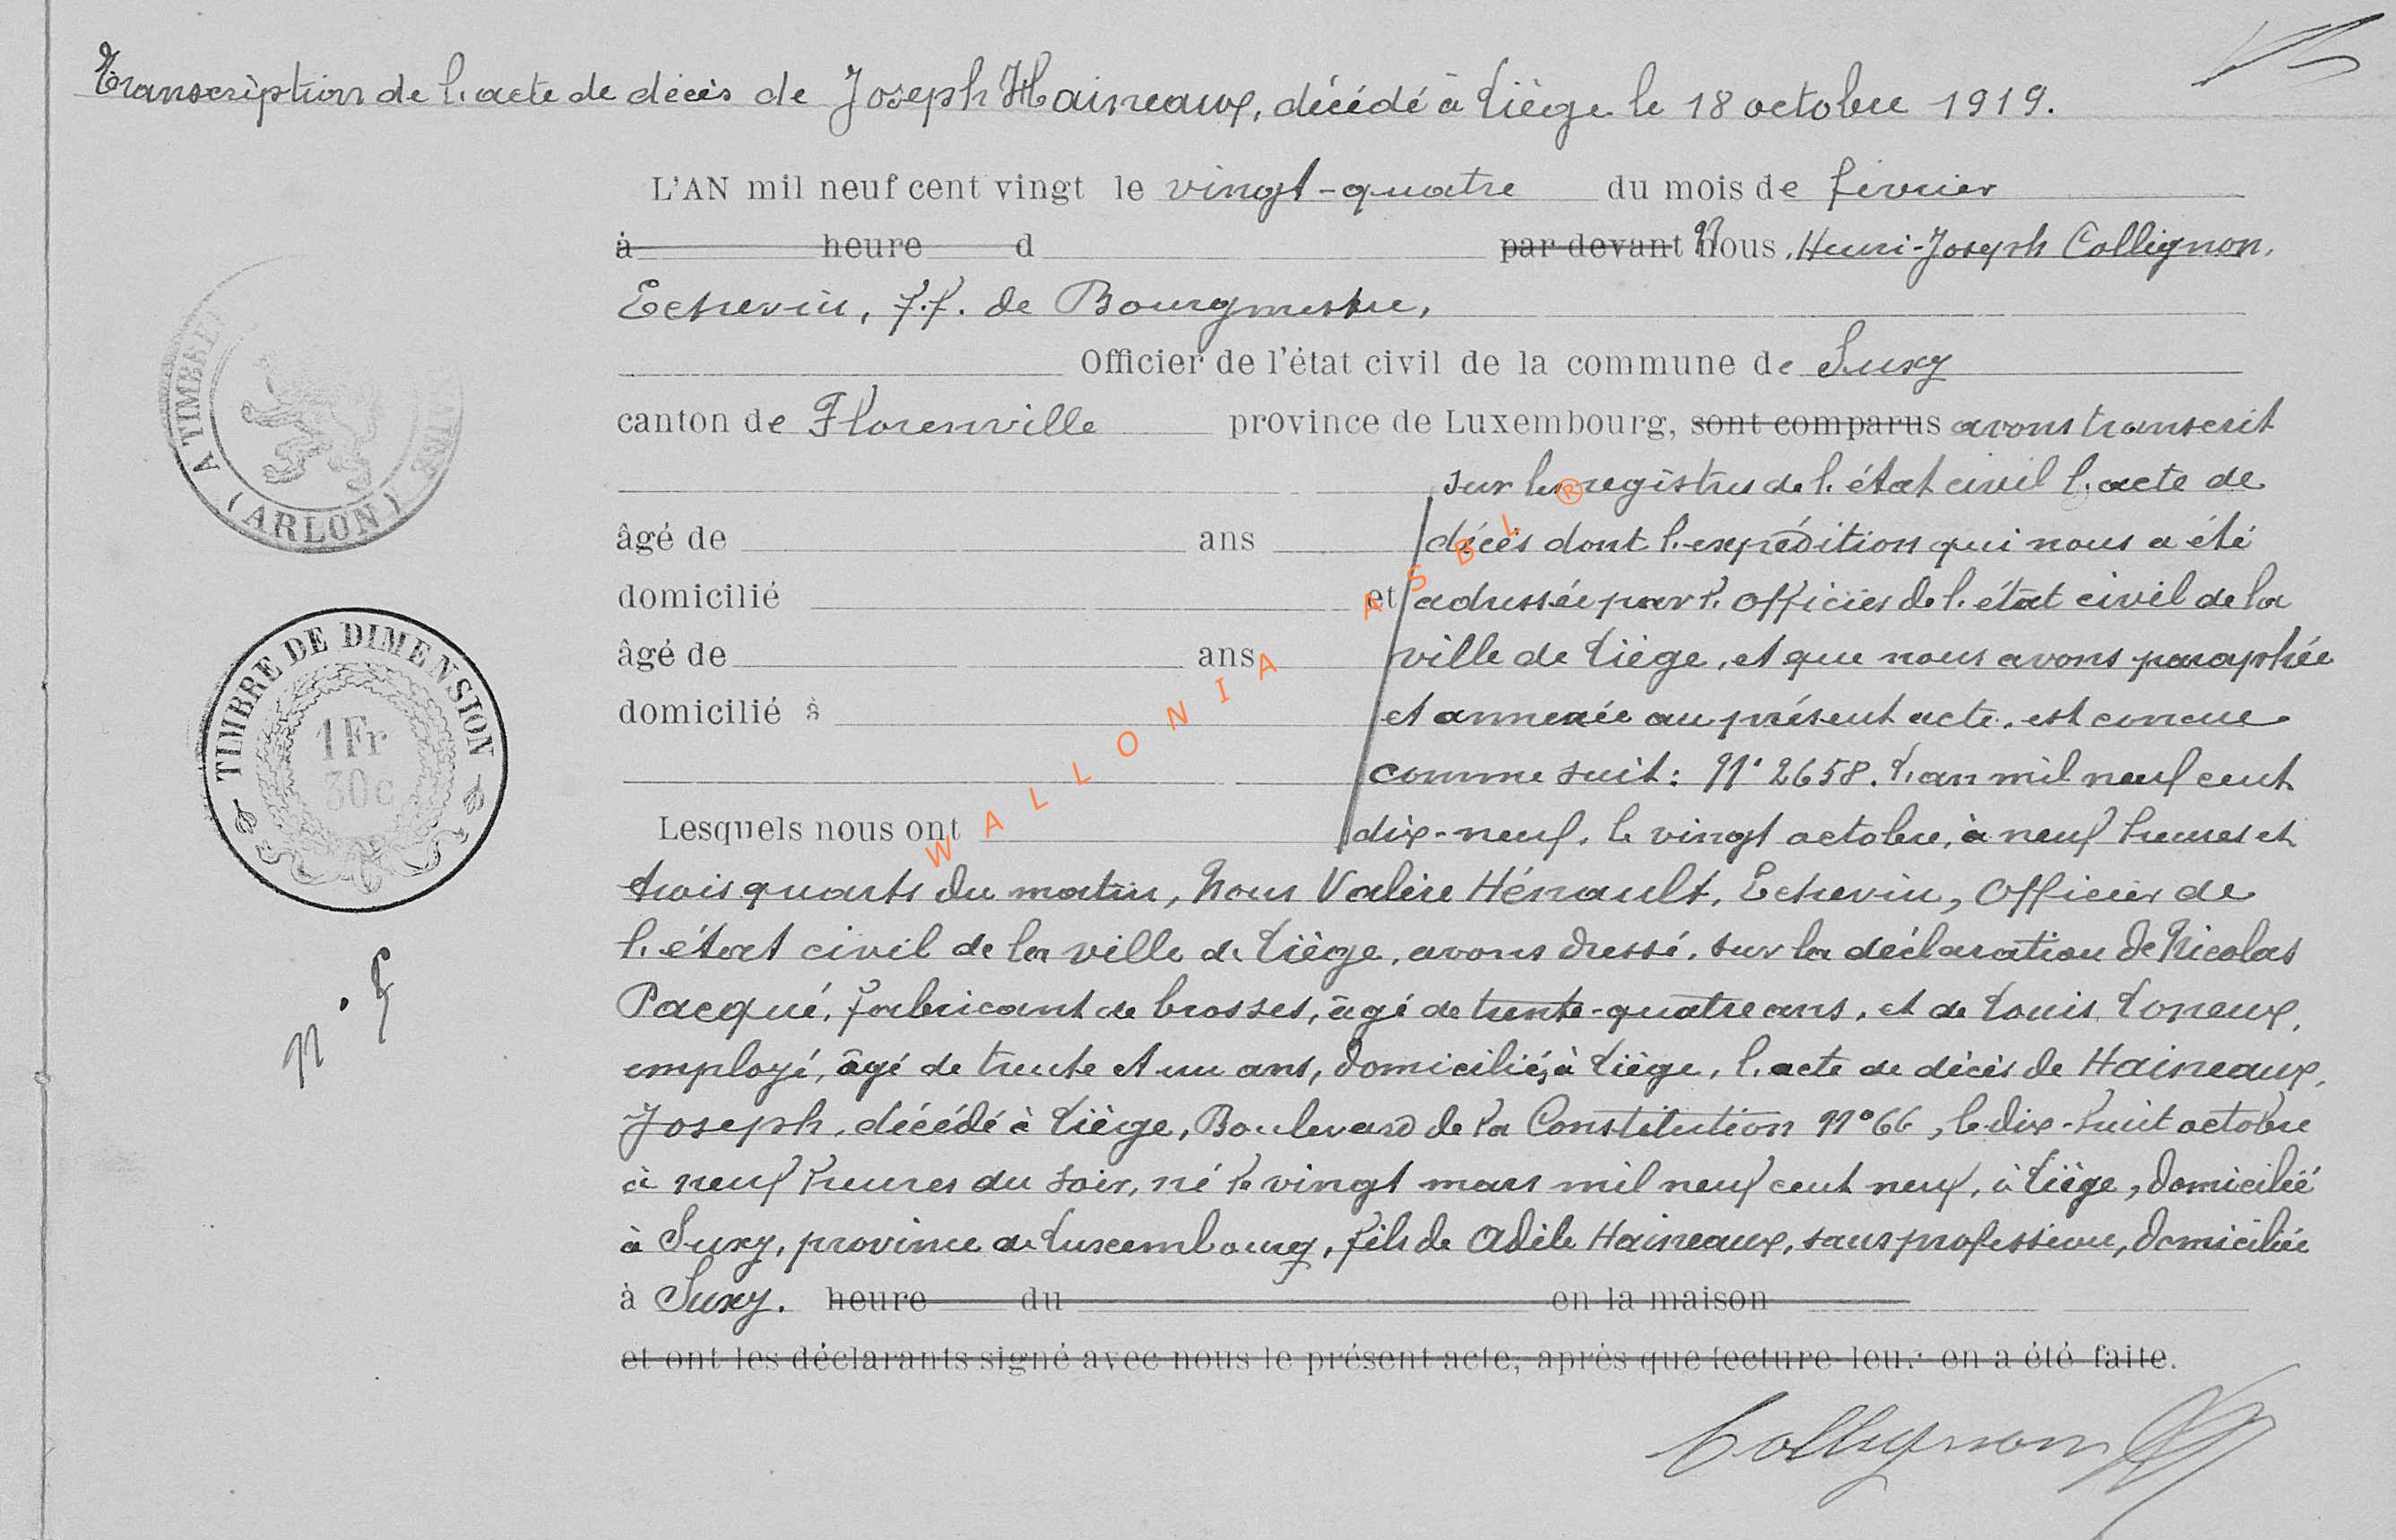 Transcription de l'acte de décès de Joseph Haineaux, décédé à Liège le 18 octobre 1919.
L'AN mil neuf cent vingt le vingt-quatre du mois de février
à heure d par devant Nous, Henri-Joseph Collignon,
Echevin, f.f. de Bourgmestre,
Officier de l'état civil de la commune de Suxy
canton de Florenville province de Luxembourg, sont comparus avons transcrit
sur les registres de l'état civil l'acte de
âgé de ans décès dont l'expédition qui nous a été
domicilié et adressée par l'officier de l'état civil de la
âgé de ans ville de Liège, et que nous avons paraphée
domicilié à et annexée au présent acte, est concue
comme suit : N° 2658. L'an mil neuf cent
Lesquels nous ont dix-neuf, le vingt octobre, à neuf heures et
trois quarts du matin, Nous Valère Hénault, Echevin, Officier de
l'état civil de la ville de Liège, avons dressé, sur la déclaration de Nicolas
Pacqué, fabricant de brosses, âgé de trente-quatre ans, et de Louis Loneux,
employé, âgé de trente et un ans, domiciliés à Liège, l'acte de décès de Haineaux,
Joseph, décédé à Liège, Boulevard de la Constitution N° 66, le dix-huit octobre
à neuf heures du soir, né le vingt mars mil neuf cent neuf, à Liège, domicilié
à Suxy, province de Luxembourg, fils de Adèle Haineaux, sans profession, domiciliée
à Suxy. heure du en la maison
et ont les déclarants signé avec nous le présent acte, après que lecture leur en a été faite.
Collignon
A TIMBRE
(ARLON)
TIMBRE DE DIMENSION
1 Fr
30 c
N° 5
WALLONIA ASBL ®